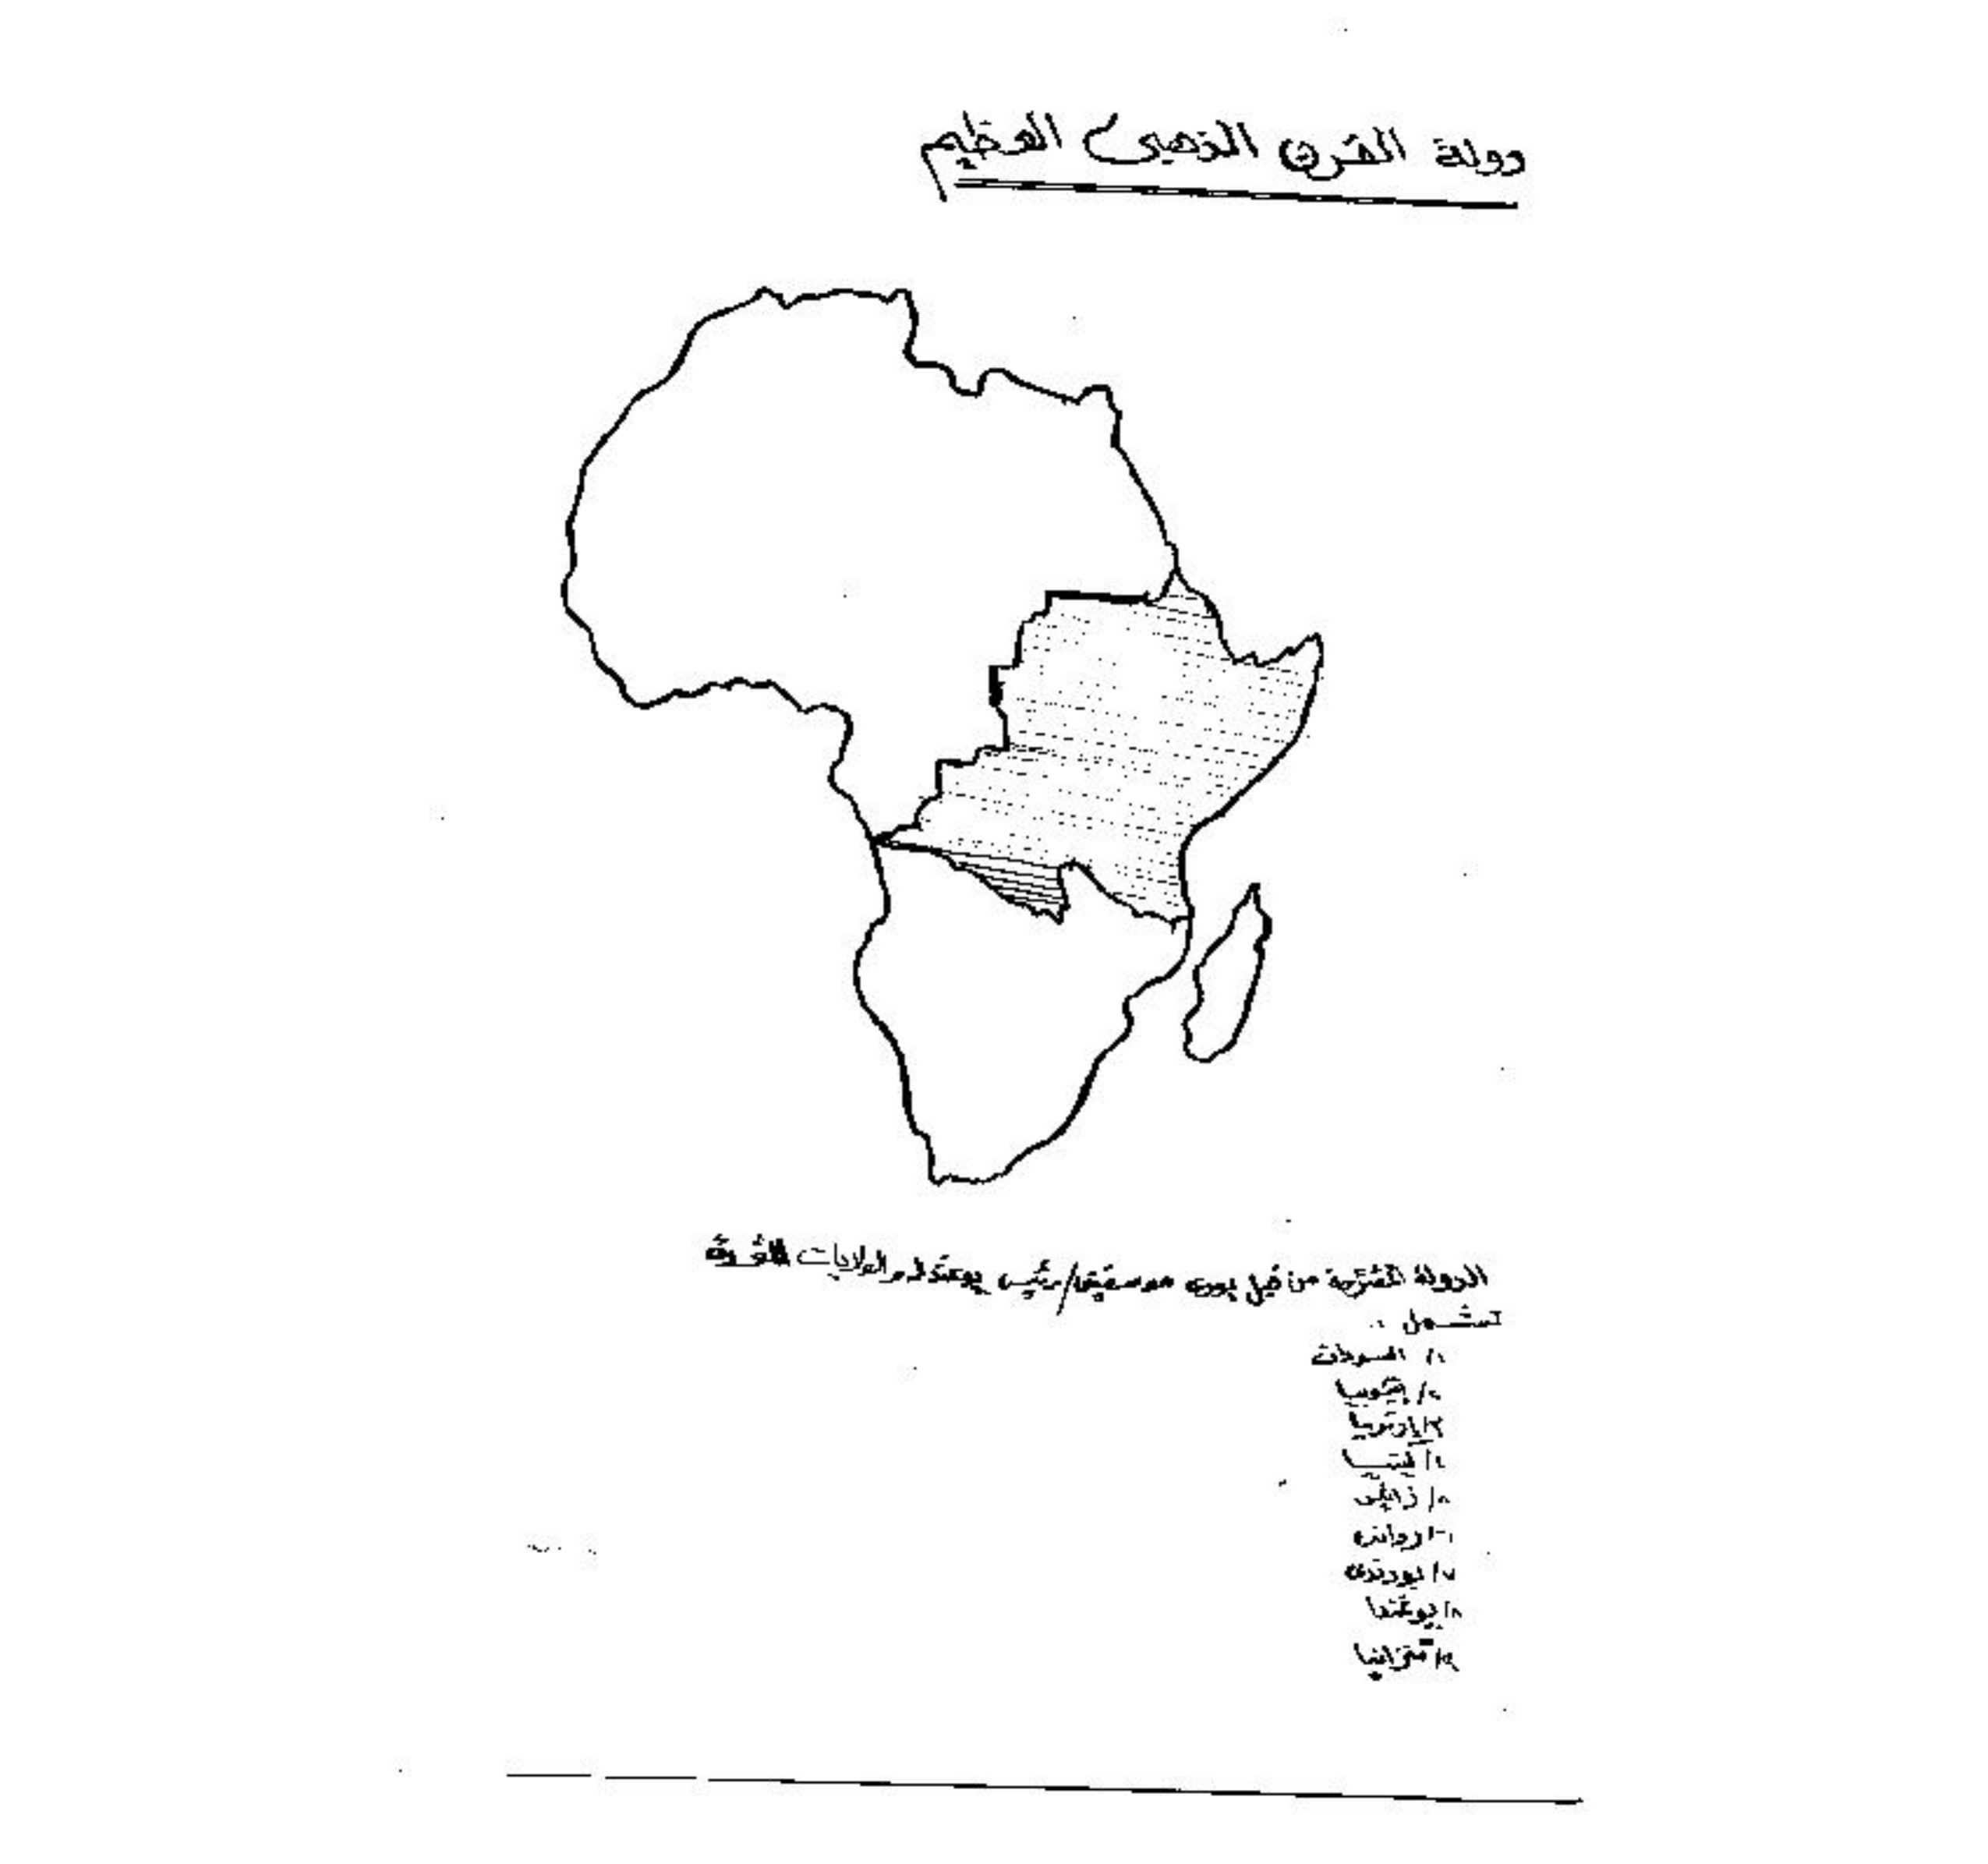 دولة القرن الذهبى العظيم
الدولة المقترحة من قبل يورى موسفينى/رئيس يوغندا والولايات المتحدة
تشمل :
١/ السودان
٢/ اثيوبيا
٣/ ارتريا
٤/ كينيا
٥/ زائير
٦/ رواندى
٧/ بورندى
٨/ يوغندا
٩/ تنزانيا